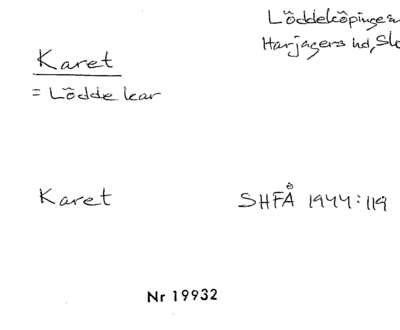 Löddeköpinge
Harjagers hd,
Karet
= Lödde kar
Karet SHFÅ 1944:119
Nr 19932